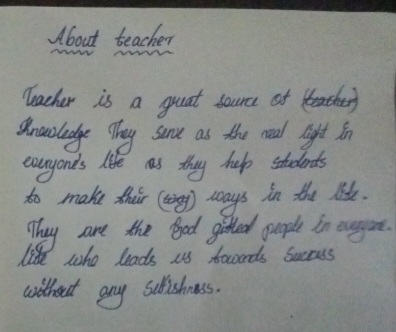 About teacher
Teacher is a great source of (teacher)
Knowledge They serve as the real light in
everyone's life as they help students
to make their (way) ways in the life.
They are the God gifted people in everyone.
life who leads us towards success
without any selfishness.